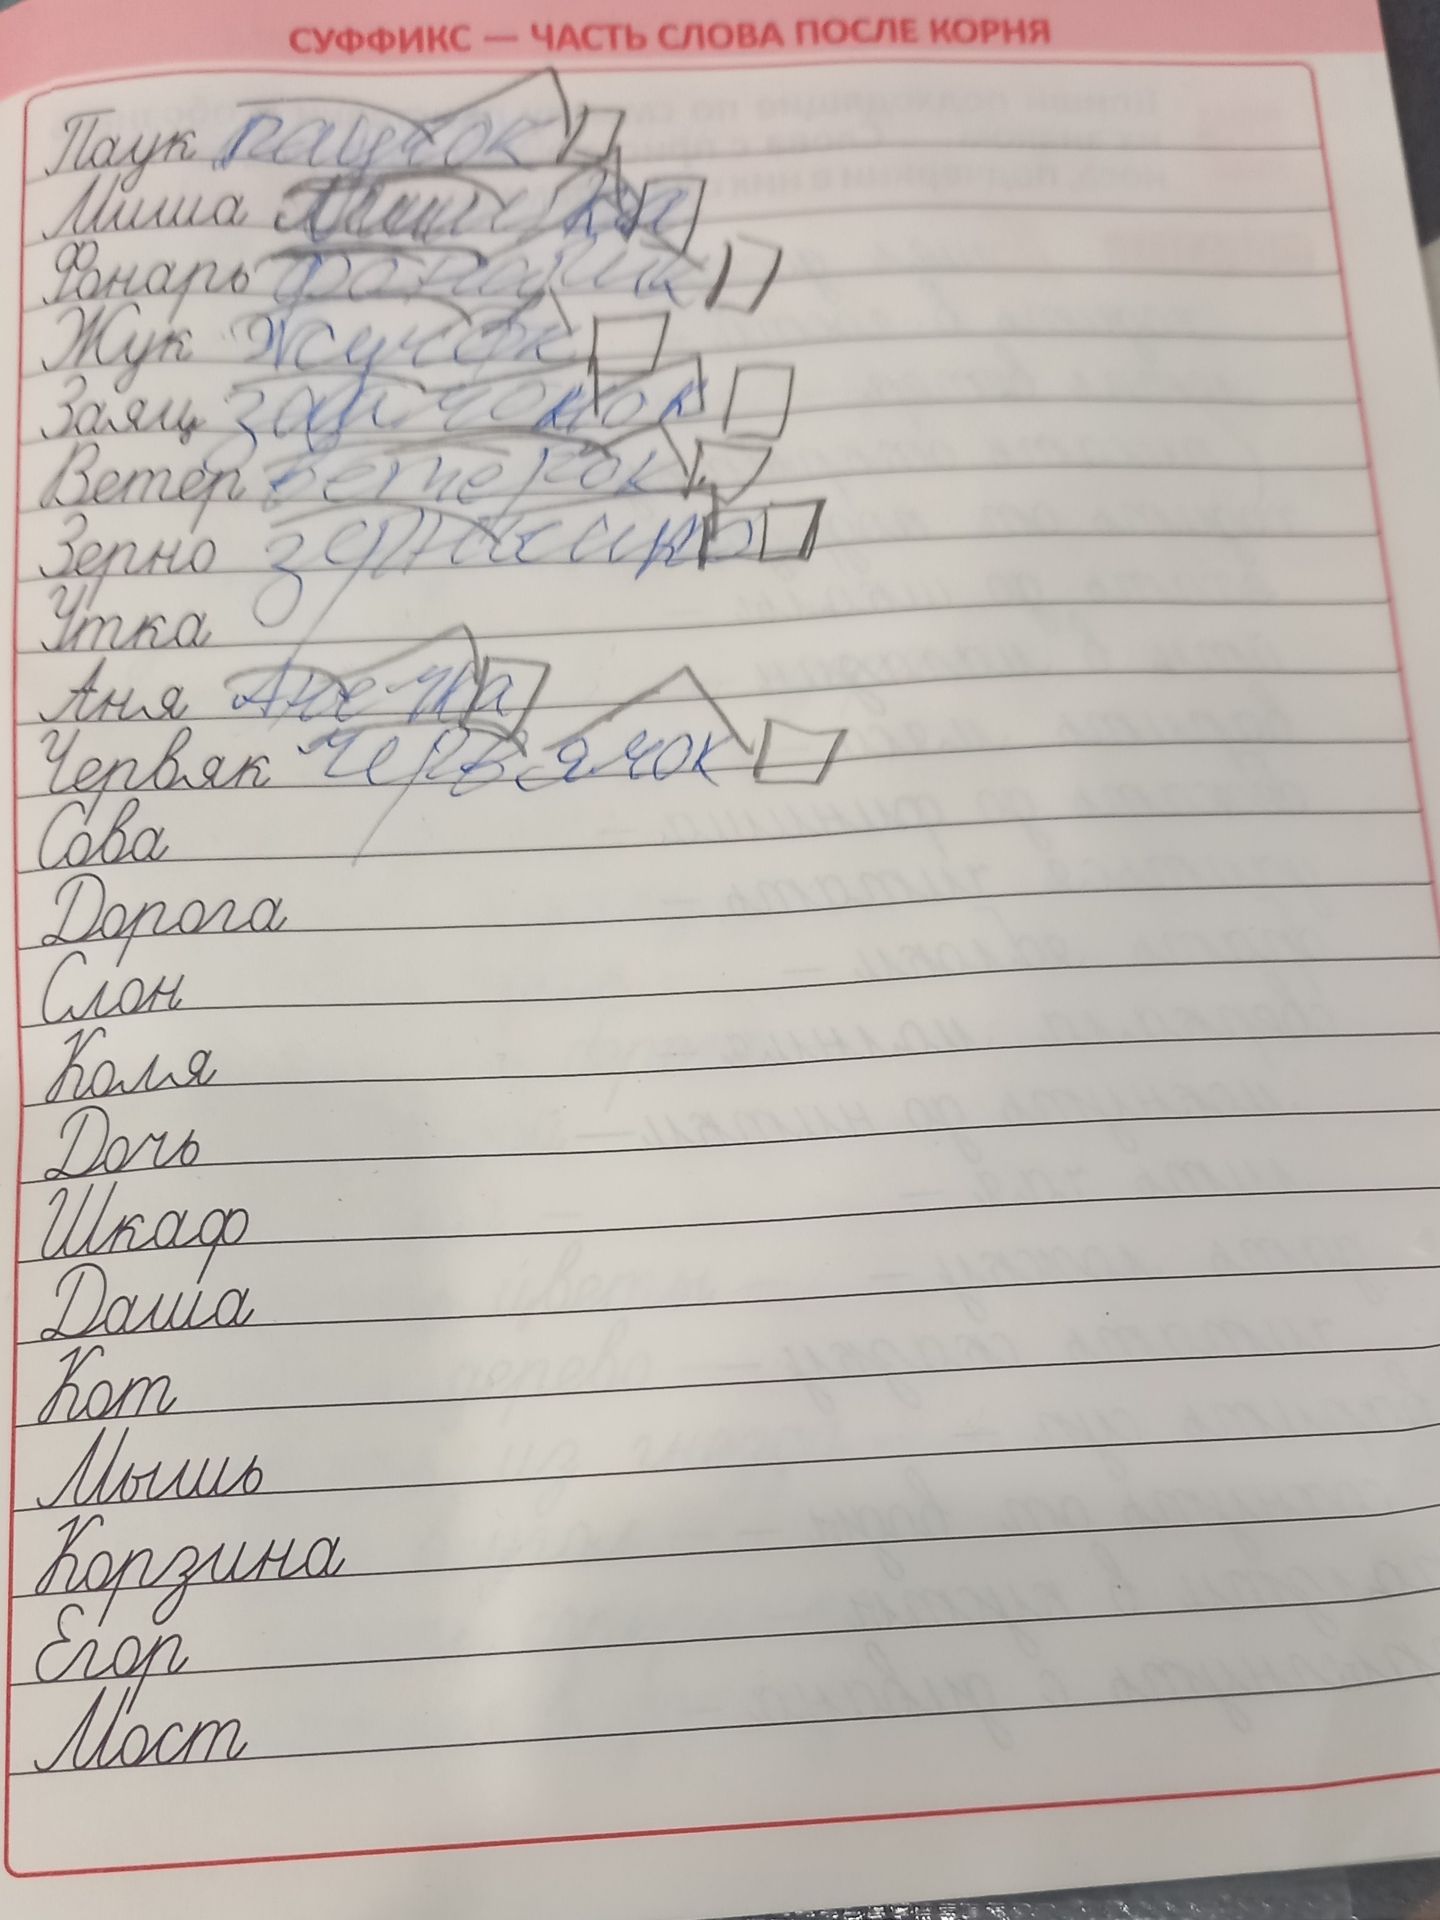 СУФФИКС — ЧАСТЬ СЛОВА ПОСЛЕ КОРНЯ
Паук паучок
Миша Мишутка
Фонарь фонарик
Жук жучок
Заяц зайчонок
Ветер ветерок
Зерно зёрнышко
Утка
Аня Анечка
Червяк червячок
Сова
Дорога
Слон
Коля
Дочь
Шкаф
Даша
Кот
Мышь
Корзина
Егор
Мост